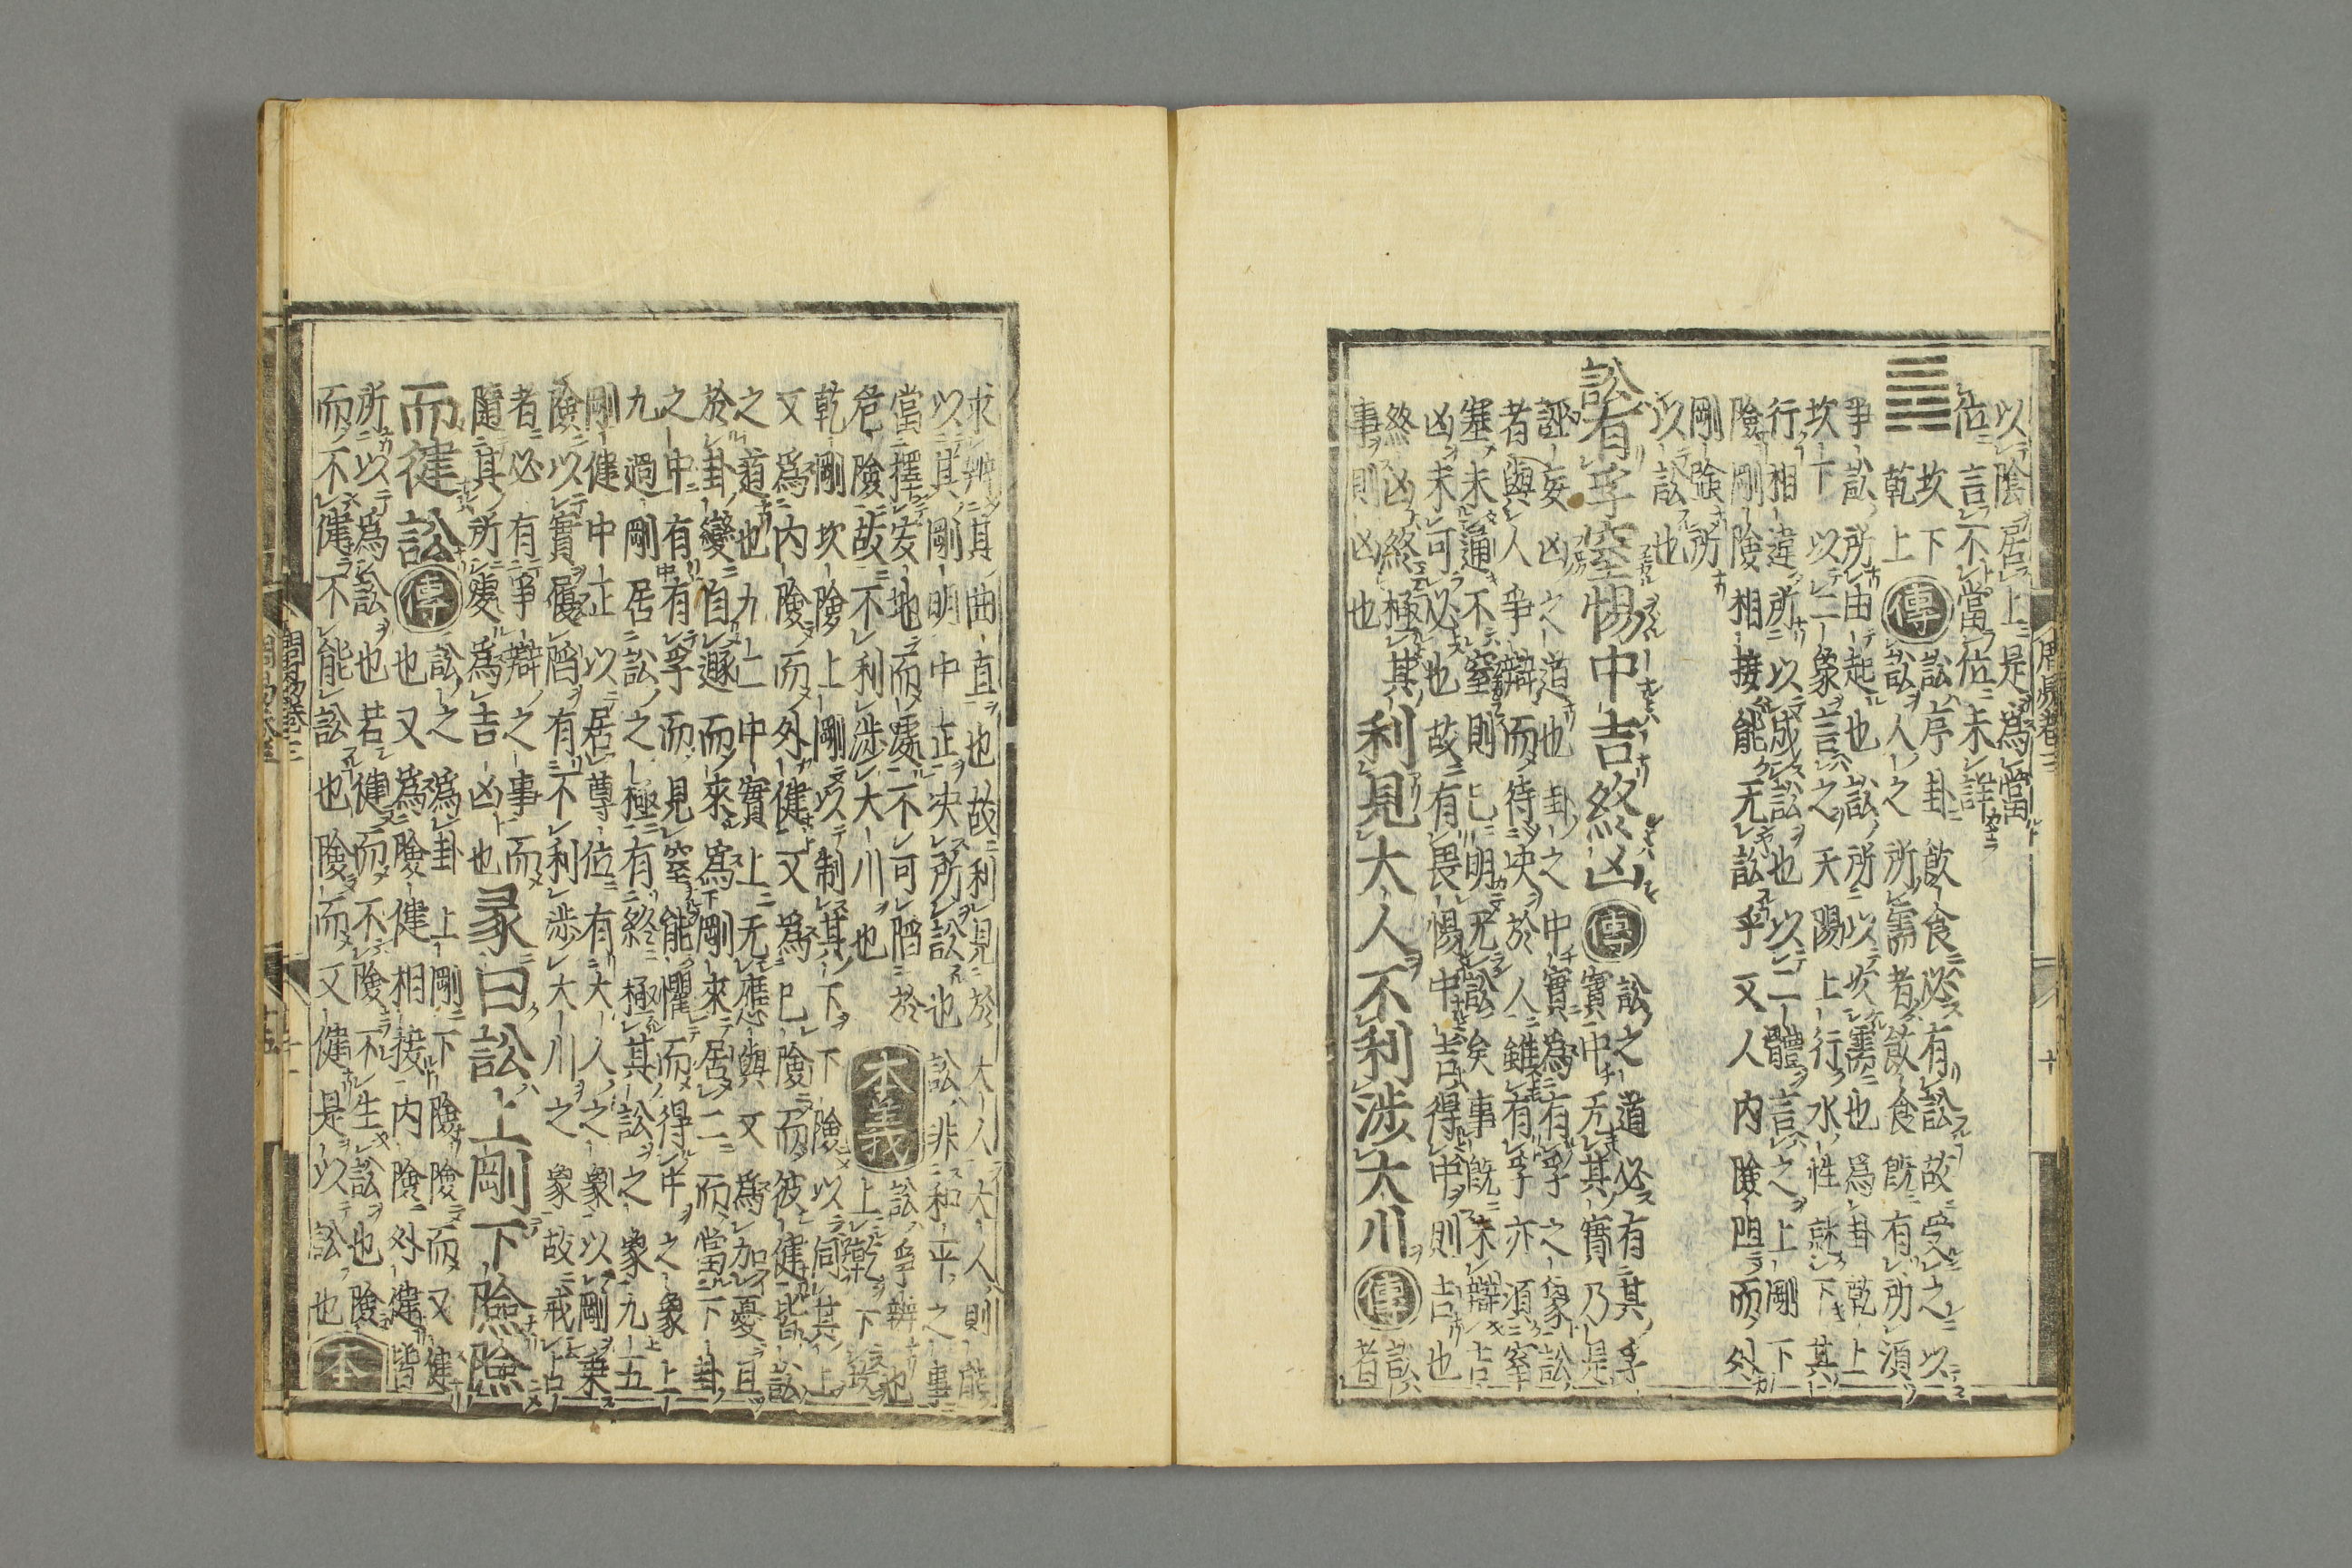 以陰居上是爲當
位言不當位未詳
坎下
乾上
傳
訟序卦飮食必有訟故受之以
訟人之所需者飮食旣有所須
爭訟所由起也訟所以次需也爲卦乾上
坎下以二象言之天陽上行水性就下其
行相違所以成訟也以二體言之上剛下
險剛險相接能无訟乎又人内險阻而外
剛險所
以訟也
訟有孚窒惕中吉終凶
傳
訟之道必有其孚
實中无其實乃是
誣妄凶之道也卦之中實爲有孚之象訟
者與人爭辯而待决於人雖有孚亦須窒
塞未通不窒則已明无訟矣事旣未辯吉
凶未可必也故有畏惕中吉得中則吉也
終凶終極其
事則凶也
利見大人不利涉大川
傳
訟
者
求辨其曲直也故利見於大人大人則能
以其剛明中正决所訟也訟非和平之事
當擇安地而處不可陷於
危險故不利涉大川也
本義
訟爭辨也
上乾下坎
乾剛坎險上剛以制其下下險以伺其上
又爲内險而外健又爲己險而彼健皆訟
之道也九二中實上无應與又爲加憂且
於卦變自遯而來爲剛來居二而當下卦
之中有有孚而見窒能懼而得中之象上
九過剛居訟之極有終極其訟之象九五
剛健中正以居尊位有大人之象以剛乗
險以實履陷有不利涉大川之象故戒占
者必有爭辯之事而
隨其所處爲吉凶也
彖曰訟上剛下險險
而健訟
傳
訟之爲卦上剛下險險而又健
也又爲險健相接内險外健皆
所以爲訟也若健而不險不生訟也險
而不健不能訟也險而又健是以訟也
本
周易卷三